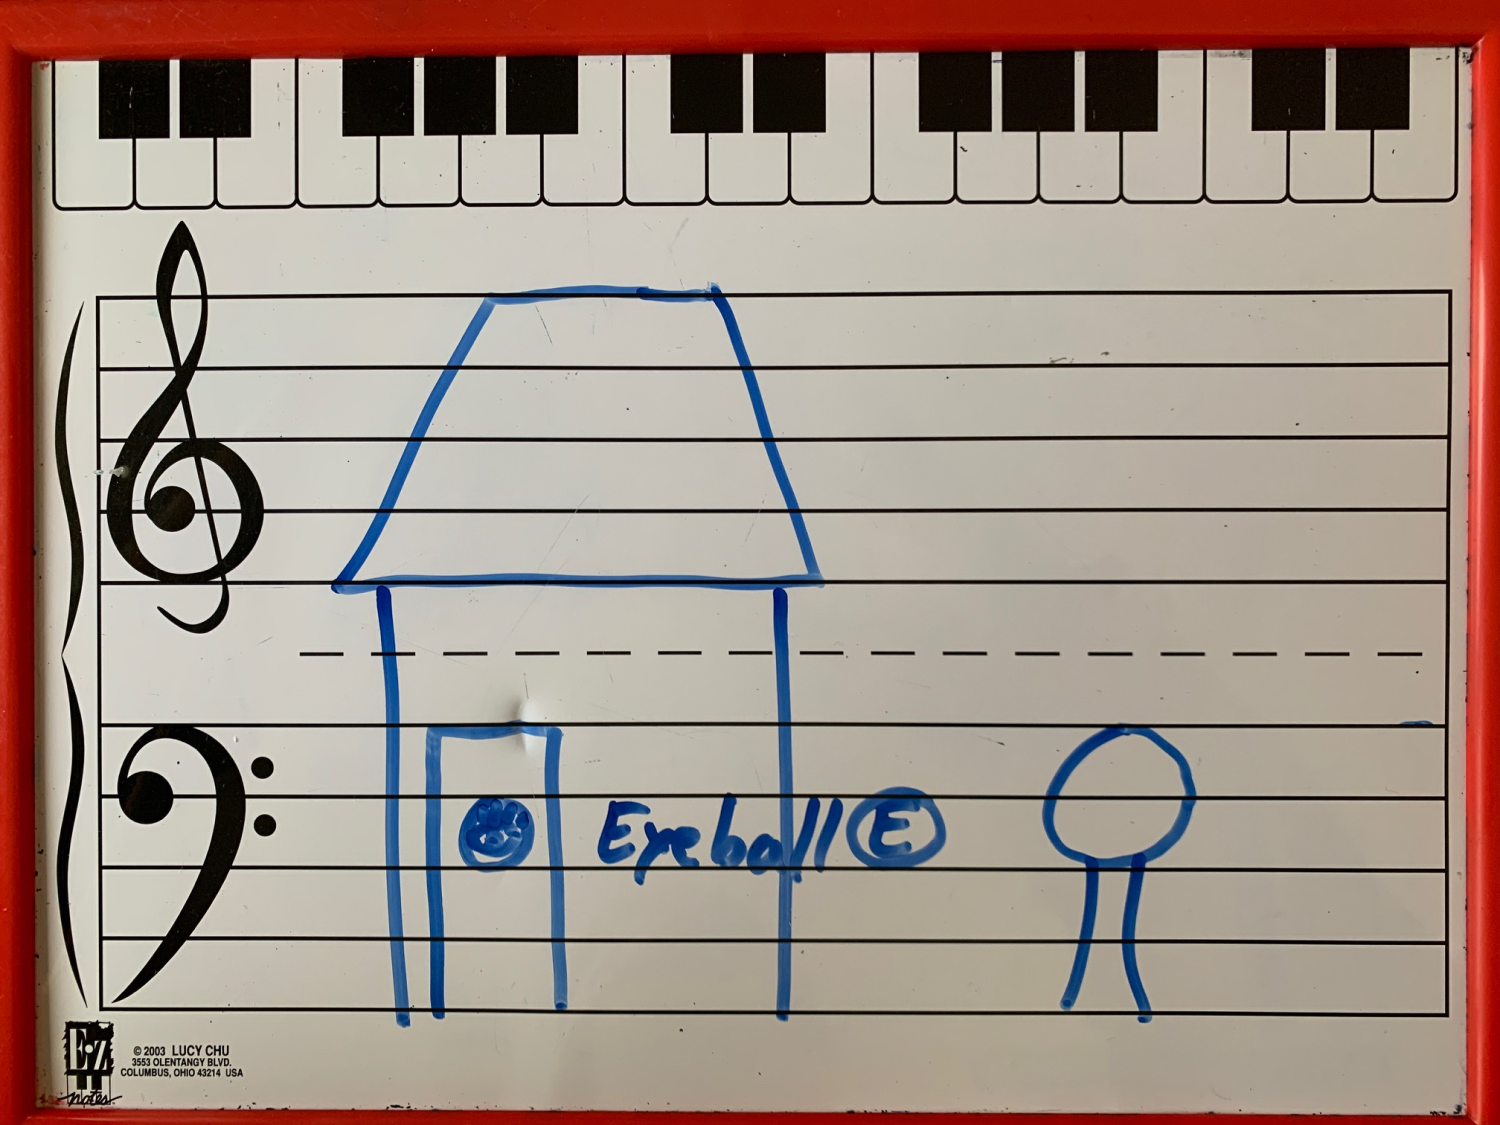 Eyeball Ⓔ
E·Z
notes
© 2003 LUCY CHU
3553 OLENTANGY BLVD.
COLUMBUS, OHIO 43214 USA